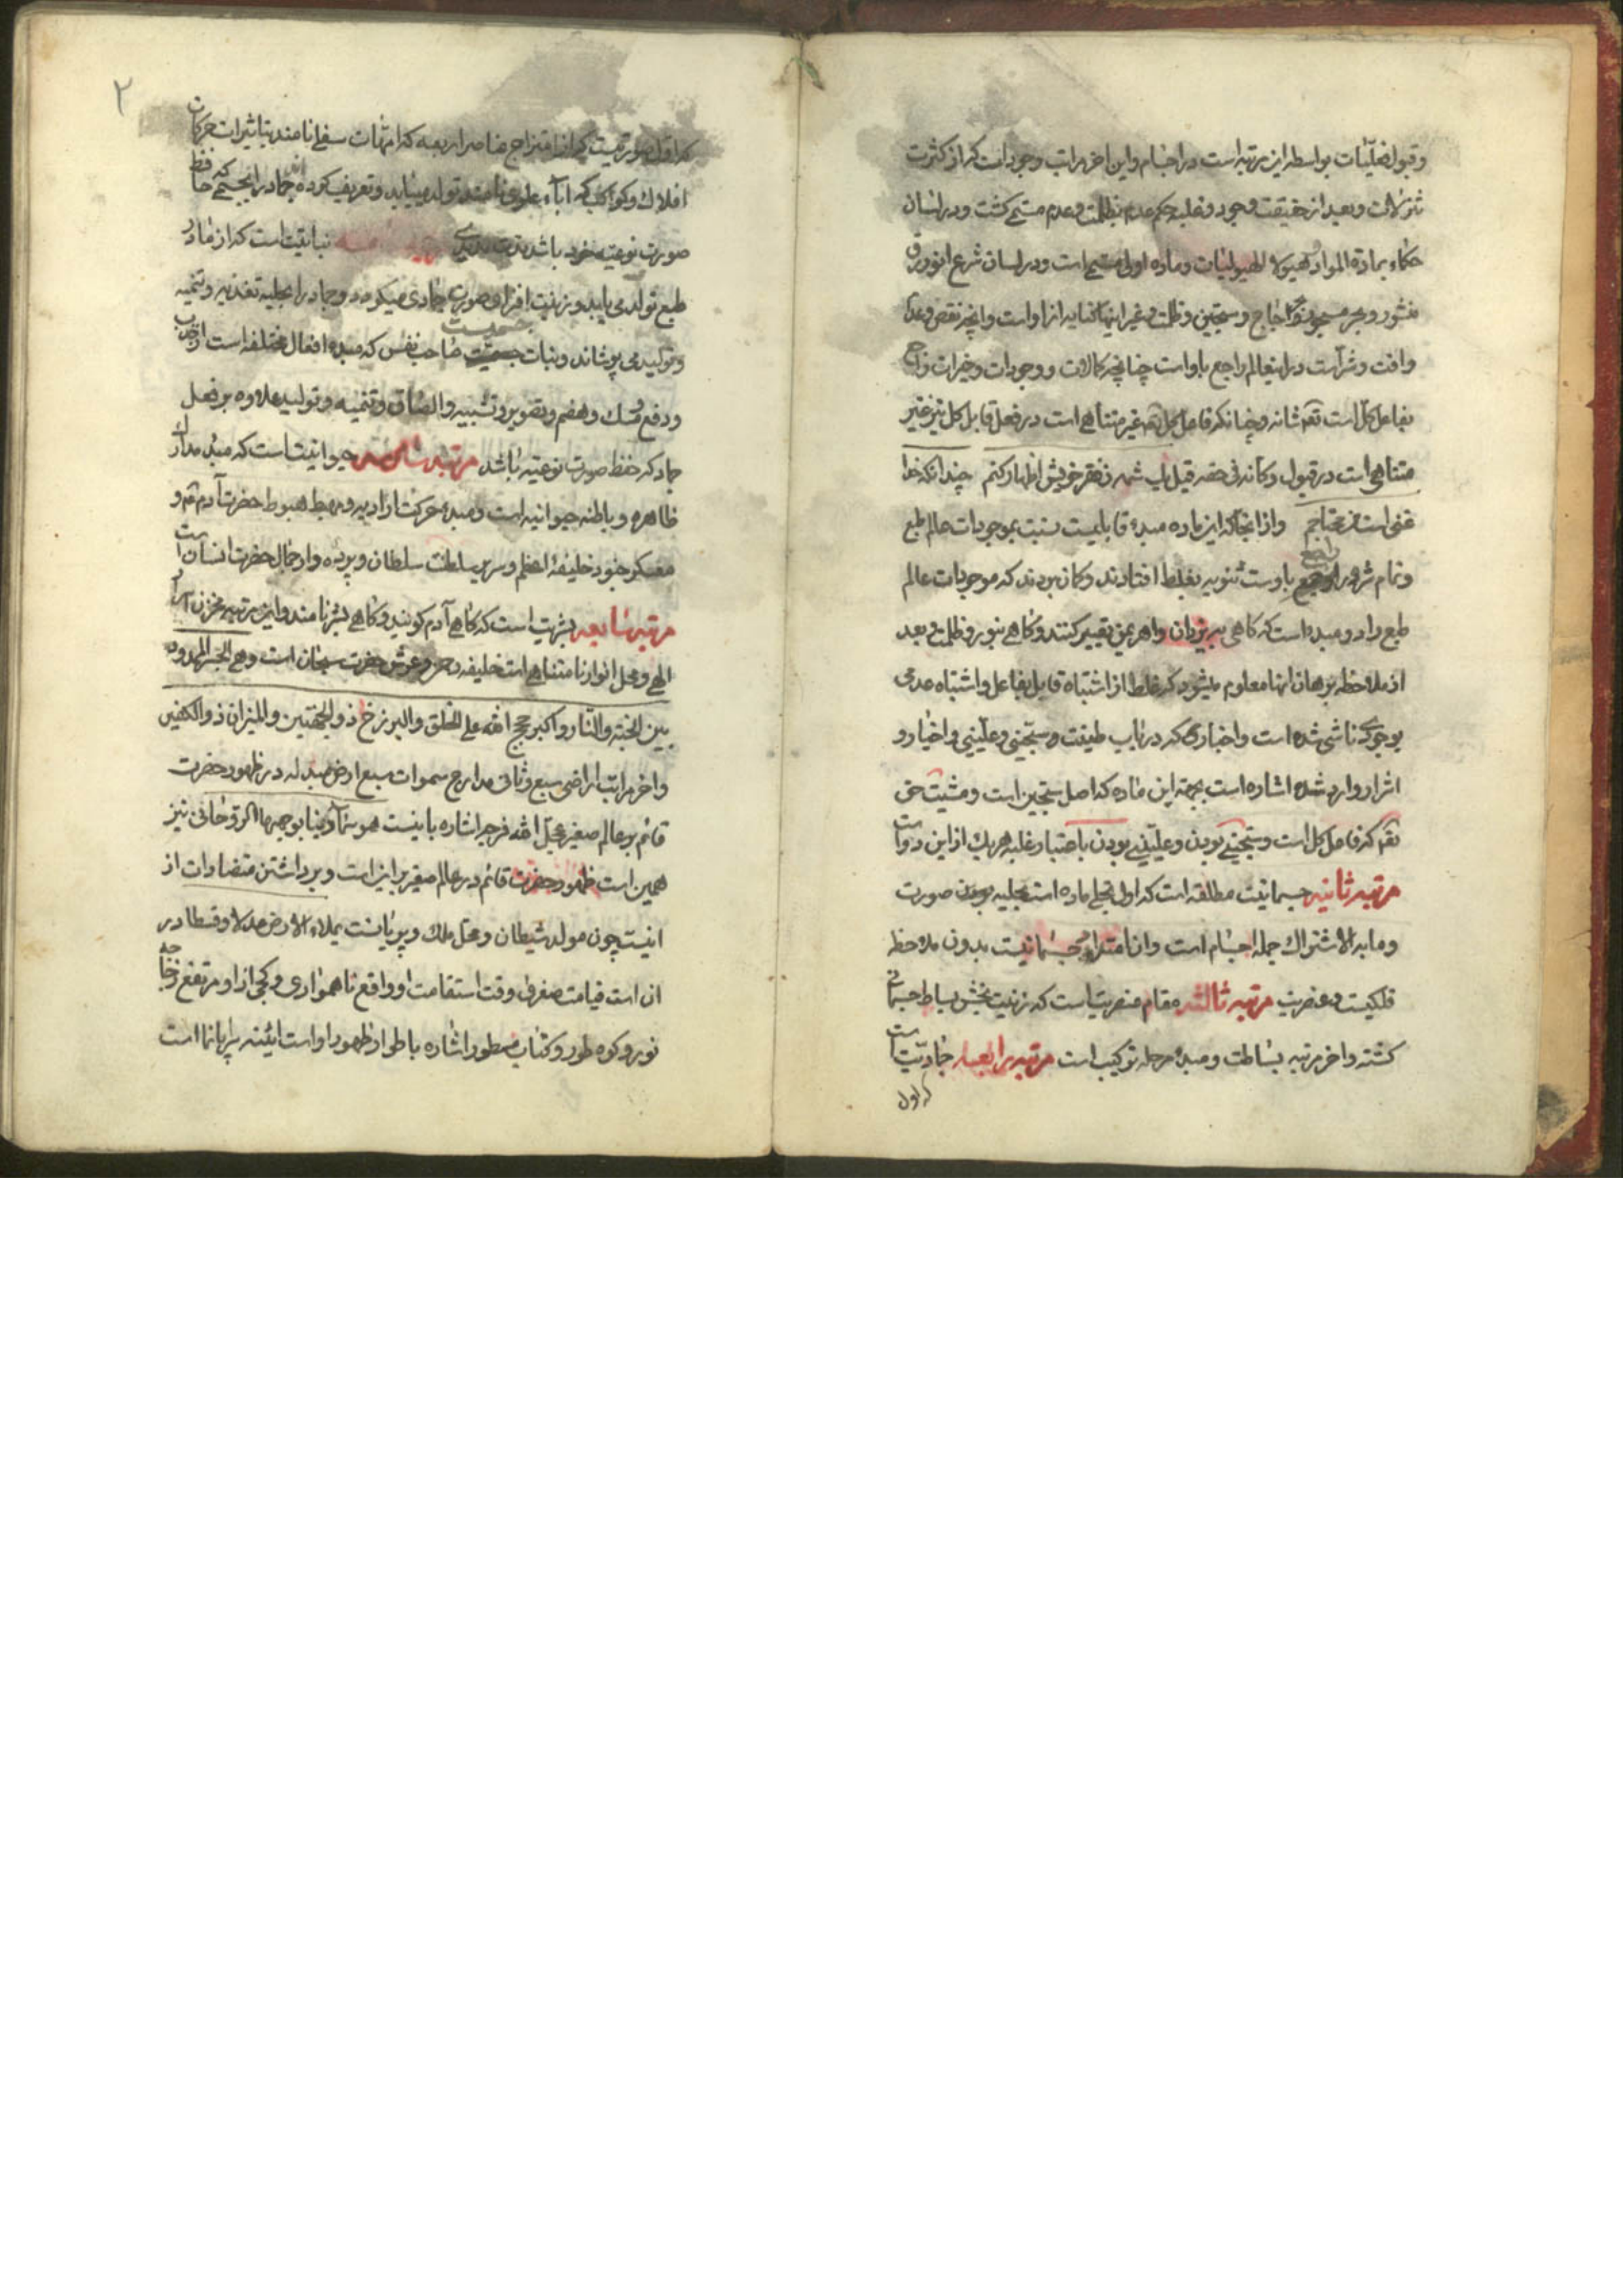 وقبول فعلیّات بواسطه این مرتبه است در اجسام واین اخر مراتب وجود است که از کثرت
تنزلات وبعد از حقیقت وجود وغلبه حکم عدم بظلمت وعدم مسمی کشت ودر لسان
حکماء بمادة المواد وهیولا الهیولیات وماده اولی مسمی است ودر لسان شرع انور برق
منشور وبحر مسجور واجاج وسجین وظلمت وغیر اینها کنایه از او است وانچه نقص وعدم
وافت وشر است در این عالم راجع باو است چنانچه کمالات ووجودات وخیرات راجع
بفاعل کل است تعه شانه وچنانکه فاعل کل تعه غیر متناهی است در فعل قابل کل نیز غیر
متناهی است در قبول وکانه فی حقه قیل یک شمه ز فقر خویش اظهار کنم چندانکه خدا
غنی است من محتاجم واز انجا که این ماده مبدء قابلیت نسبت بموجودات عالم طبع
وتمام شرور راجع باوست ثنویه بغلط افتادند وکمان بردند که موجودات عالم
طبع را دو مبدء است که کاهی به یزدان واهریمن تعبیر کنند وکاهی بنور وظلمت وبعد
از ملاحظه برهان انها معلوم میشود که غلط از اشتباه قابل بفاعل واشتباه عدمی
بوجودی ناشی شده است واخباری که در باب طینت وسجینی وعلیینی واخیار و
اشرار وارد شده اشاره است بجهة این ماده که اصل سجین است ومشیت حق
تعه که فاعل کل است وسجینی بودن وعلیینی بودن باعتبار غلبه هر یک از این دو است
مرتبه ثانیه جسمانیت مطلقه است که اول تجلی ماده است بحلیه صورت
وما به الاشتراک جمله اجسام است وان امتداد جسمانیت بدون ملاحظه
فلکیت وعنصریت مرتبه ثالثه مقام عنصریت است که زینت بخش بساط جسمانی
کشته واخر مرتبه بساطت ومبدء مرحله ترکیب است مرتبه رابعه جمادیت است
که اول
۲
که اول صورتیست که از امتزاج عناصر اربعه که امهات سفلی نامند بتاثیرات حرکات
افلاک وکواکب که اباء علوی نامند تولد مینماید وتعریف کرده اند جماد را بجسمی که حافظ
صورت نوعیه خود باشد مدت مدیدی مرتبه خامسه نباتیت است که از مادر
طبع تولد می یابد وزینت افزای صورت جمادی میکردد وجماد را بحلیه تغذیه وتنمیه
وتولید می پوشاند ونبات جسمیت صاحب نفس که مبدء افعال مختلفه است از جذب
ودفع ومسک وهضم وتصویر وتشبیه والصاق وتنمیه وتولید علاوه بر فعل
جماد که حفظ صورت نوعیه باشد مرتبه سادسه حیوانیت است که مبدء مدارک
ظاهره وباطنه حیوانیه است ومبدء حرکت ارادیه ومهبط هبوط حضرت آدم ع و
معسکر جنود خلیفهٔ اعظم وسریر سلطنت سلطان وپرده دار جمال حضرت انسان است
مرتبه سابعه بشریت است که کاهی آدم کویند وکاهی بشر نامند واین مرتبه مخزن اسرار
الهی ومحل انوار نامتناهی است خلیفه رحمن وعرش حضرت سبحان است وهی الجسر الممدود
بین الجنة والنار واکبر حجج الله علی الخلق والبرزخ ذو الجهتین والمیزان ذو الکفتین
واخر مراتب اراضی سبع وثانی مدارج سموات سبع ارض مبدله در ظهور حضرت
قائم بر عالم صغیر عجّل الله فرجه اشاره باینست هو سماء دنیا بوجهها الروحانی نیز
همین است ظهور حضرت قائم در عالم صغیر بر این است وبرداشتن متضادات از
اینست چون مولد شیطان ومحل ملک وپریانست یملاء الارض عدلا وقسطا در
ان است قیامت صغری وقت استقامت او وواقع ناهمواری وکجی از او مرتفع زجاجه
نور وکوه طور وکتاب مسطور اشاره باطوار ظهور او است ائینه سراپا نما است